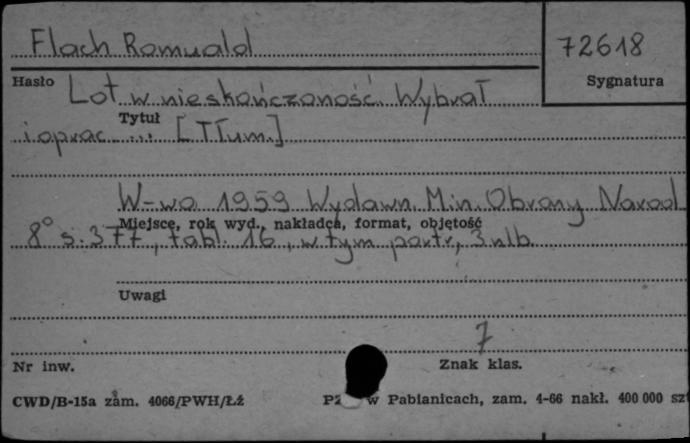 Flach Romuald
72618
Hasło
Sygnatura
Lot w nieskończoność. Wybrał
Tytuł
i oprac. ... [Tłum.]
W-wa 1959 Wydawn. Min. Obrony Narod.
Miejsce, rok wyd., nakładca, format, objętość
8° s. 377, tabl. 16, w tym portr., 3 nlb.
Uwagi
7
Nr inw.
Znak klas.
CWD/B-15a zam. 4066/PWH/Łź
w Pabianicach, zam. 4-66 nakł. 400 000 szt